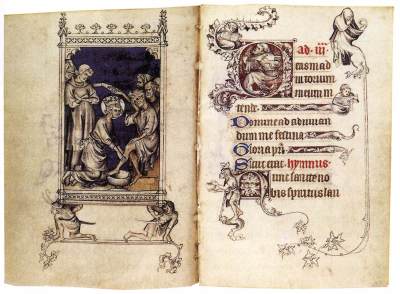 ad iij.
Deus in ad
iutorium
meum in
tende.
Domine ad adiuuan
dum me festina
Gloria pri
Sicut erat. hymnus
Nunc sancte no
bis spiritus san